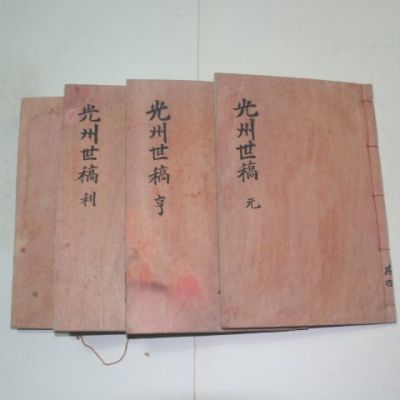 光州世稿 元
光州世稿 亨
光州世稿 利